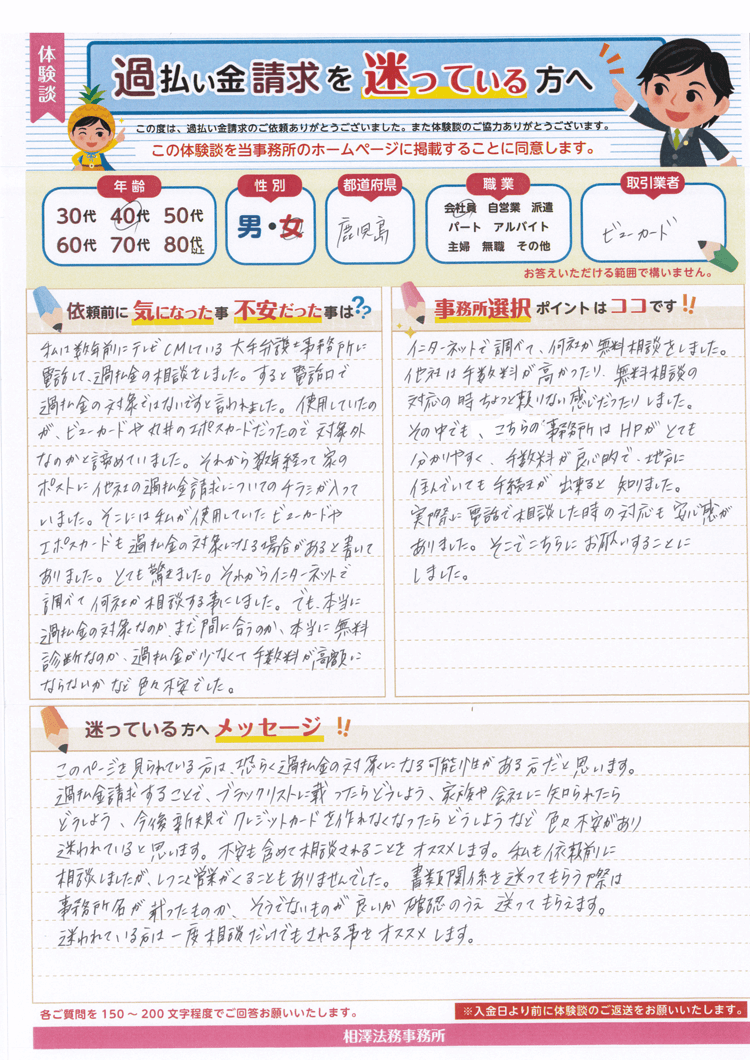 体験談
過払い金請求を迷っている方へ
この度は、過払い金請求のご依頼ありがとうございました。また体験談のご協力ありがとうございます。
この体験談を当事務所のホームページに掲載することに同意します。
年齢
30代 40代 50代
60代 70代 80代以上
性別
男・女
都道府県
鹿児島
職業
会社員 自営業 派遣
パート アルバイト
主婦 無職 その他
取引業者
ビューカード
お答えいただける範囲で構いません。
依頼前に気になった事 不安だった事は??
私は数年前にテレビCMしている大手弁護士事務所に
電話して、過払金の相談をしました。すると電話口で
過払金の対象ではないですと言われました。使用していたの
が、ビューカードや丸井のエポスカードだったので対象外
なのかと諦めていました。それから数年経って家の
ポストに他社の過払金請求についてのチラシが入って
いました。そこには私が使用していたビューカードや
エポスカードも過払金の対象になる場合があると書いて
ありました。とても驚きました。それからインターネットで
調べて何社か相談する事にしました。でも、本当に
過払金の対象なのか、まだ間に合うのか、本当に無料
診断なのか、過払金が少なくて手数料が高額に
ならないかなど色々不安でした。
事務所選択ポイントはココです!!
インターネットで調べて、何社か無料相談をしました。
他社は手数料が高かったり、無料相談の
対応の時ちょっと頼りない感じだったりしました。
その中でも、こちらの事務所はHPがとても
分かりやすく、手数料が良心的で、地方に
住んでいても手続きが出来ると知りました。
実際に電話で相談した時の対応も安心感が
ありました。そこでこちらにお願いすることに
しました。
迷っている方へメッセージ!!
このページを見られている方は、恐らく過払金の対象になる可能性がある方だと思います。
過払金請求することで、ブラックリストに載ったらどうしよう、家族や会社に知られたら
どうしよう、今後新規でクレジットカードを作れなくなったらどうしようなど色々不安があり
迷われていると思います。不安も含めて相談されることをオススメします。私も依頼前に
相談しましたが、しつこく営業がくることもありませんでした。書類関係を送ってもらう際は
事務所名が載ったものか、そうでないものが良いか確認のうえ送ってもらえます。
迷われている方は一度相談だけでもされる事をオススメします。
各ご質問を150～200文字程度でご回答お願いいたします。
※入金日より前に体験談のご返送をお願いいたします。
相澤法務事務所